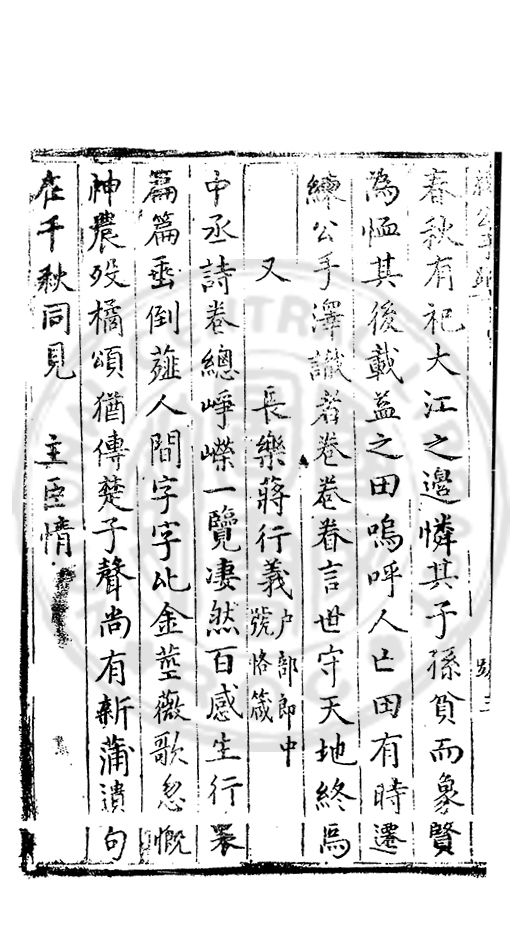 春秋有祀大江之邊憐其子孫貧而象賢
為恤其後載益之田嗚呼人亡田有時遷
練公手澤識者卷卷眷言世守天地終焉
又
長樂蔣行義戶部郎中號恪箴
中丞詩卷總崢嶸一覽淒然百感生行
篇篇垂倒薤人間字字比金莖薇歌忽慨
神農歿橘頌猶傳楚子聲尚有新蒲遺句
在千秋同見主臣情